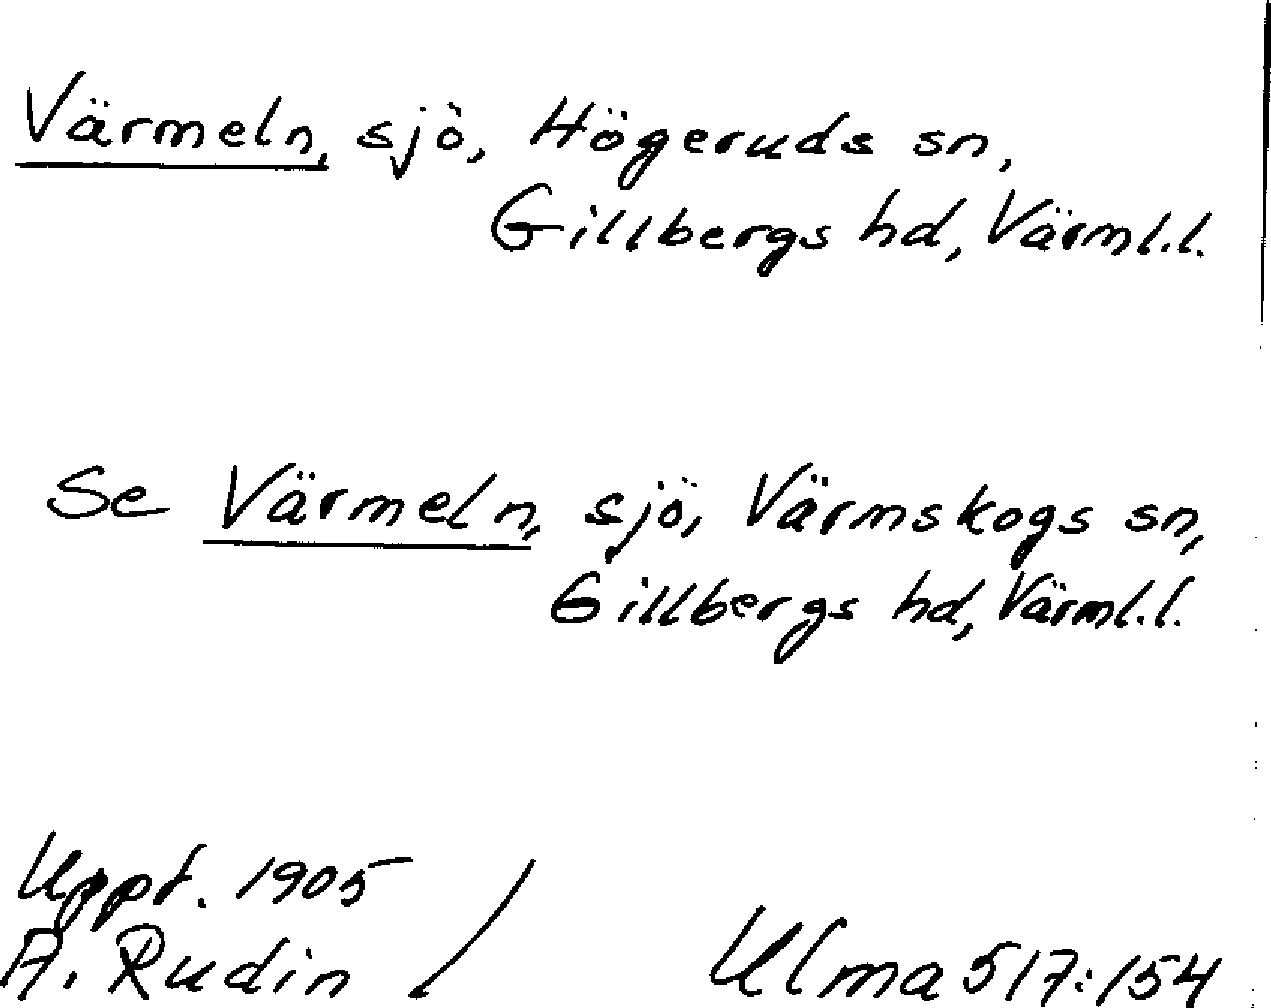 Värmeln, sjö, Högeruds sn,
Gillbergs hd, Värml.l.
Se Värmeln, sjö, Värmskogs sn,
Gillbergs hd, Värml.l.
Uppt. 1905
A. Rudin /
Ulma 517:154